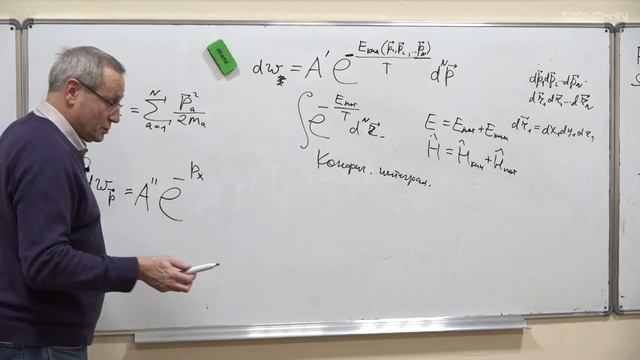 dw = A' e^{-\frac{E_{кин}(\vec{p}_1, \vec{p}_2, ... \vec{p}_N)}{T}} d^N\vec{p}
= \sum_{a=1}^{N} \frac{\vec{p}_a^2}{2m_a}
\int e^{-\frac{E_{пот}}{T}} d^N\vec{r}
d\vec{p}_1 d\vec{p}_2 ... d\vec{p}_N
d\vec{r}_1 d\vec{r}_2 ... d\vec{r}_N
E = E_{пот} + E_{кин}
d\vec{r}_1 = dx_1 dy_1 dz_1
\hat{H} = \hat{H}_{кин} + \hat{H}_{пот}
Конфиг. интеграл.
dw_{\vec{p}} = A'' e^{-p_x}